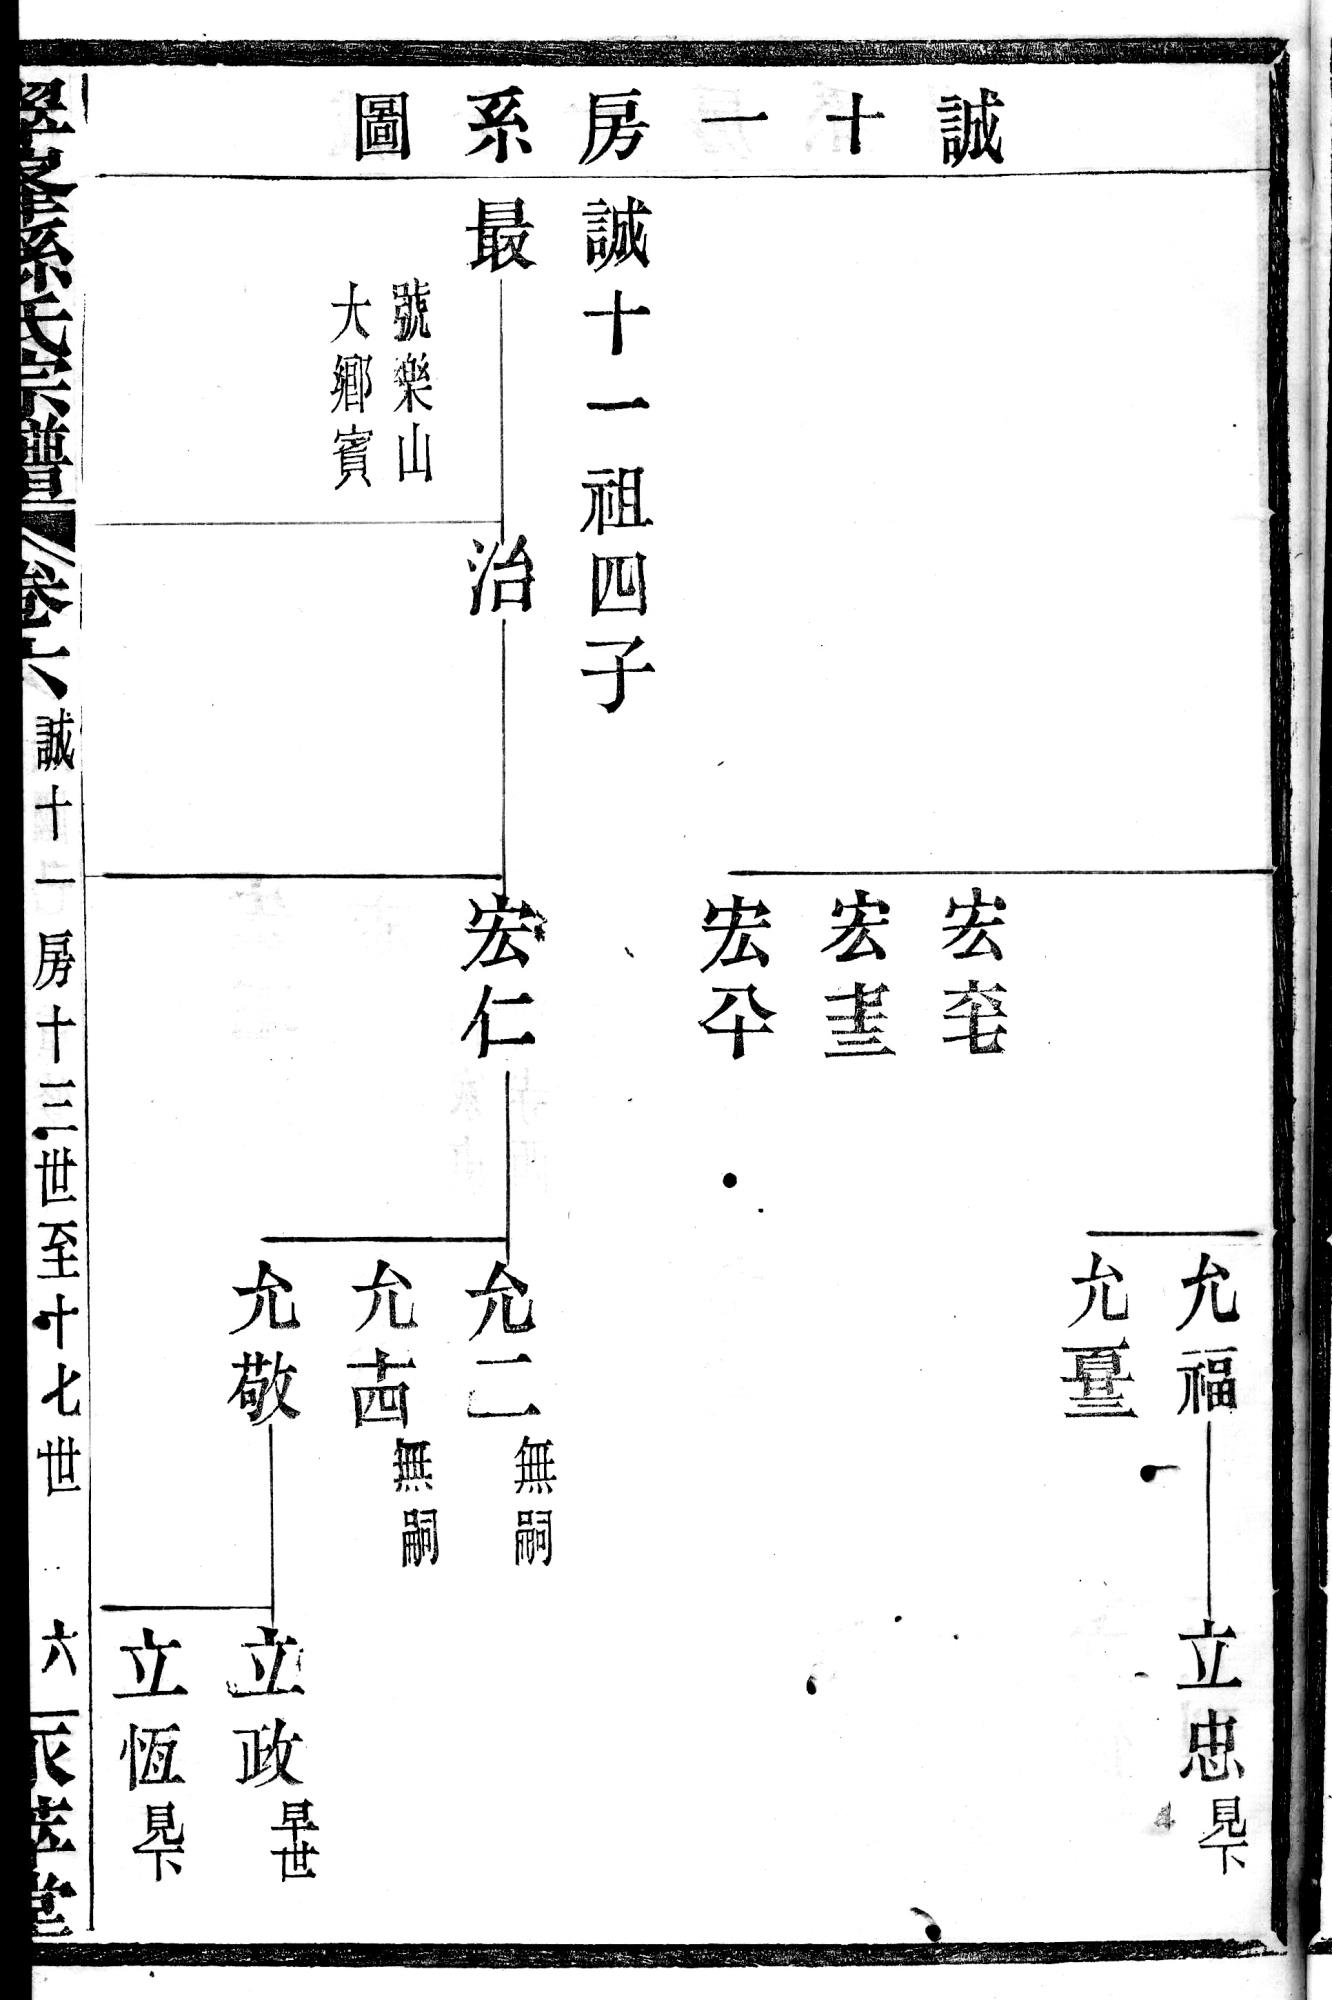 誠十一房系圖
誠十一祖四子
最
號樂山
大鄉賓
治
宏仁
宏
宏
宏
允福
允
允二
無嗣
允
無嗣
允敬
立忠
見下
立政
早世
立恆
見下
孫氏宗譜
卷六
誠十一房十三世至十七世
六
堂